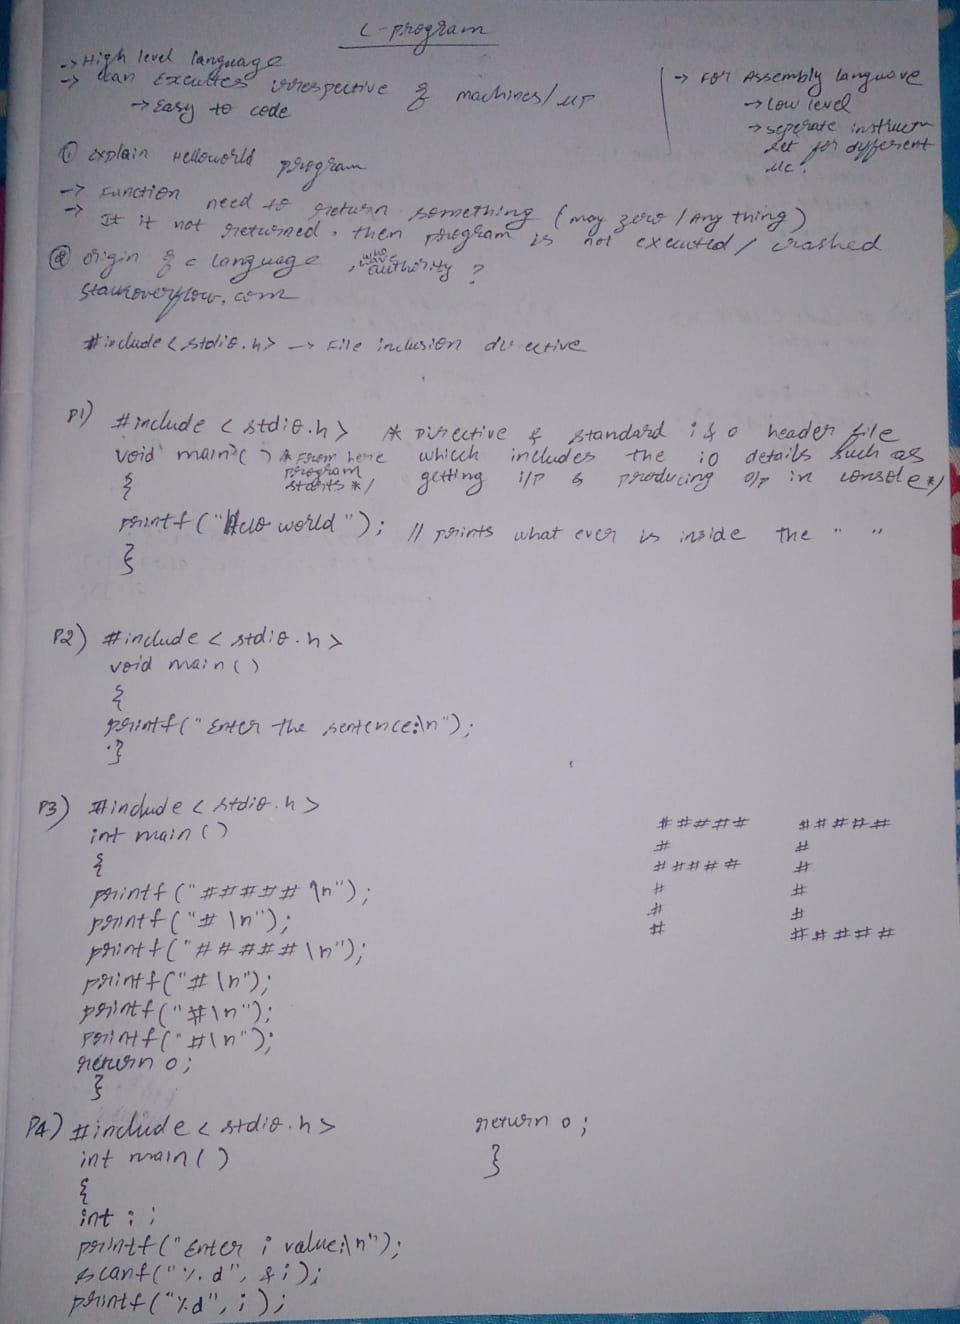 C-program
-> High level language
-> Can Excuttes irrespective of machines/MP
-> Easy to code
-> For Assembly languave
-> Low level
-> seperate instructn
set for different
Mc.
① explain Helloworld program
-> Function need to return something (may zero / Any thing)
-> If it not returned, then program is not executed / crashed
② origin of c language, who have authority ?
Stackoverflow.com
#include <stdio.h> -> File inclusion directive
P1) #include < stdio.h > /* Directive & standard i & o header file
void main() /* From here program starts */ which includes the io details such as
{ getting i/p & producing o/p in console */
printf("Hello world"); // prints what ever is inside the " "
}
P2) #include < stdio.h >
void main()
{
printf("Enter the sentence:\n");
}
P3) #include < stdio.h >
int main()
{
printf("##### \n");
printf("# \n");
printf("#####\n");
printf("# \n");
printf("#\n");
printf("#\n");
return 0;
}
##### #####
# #
##### #
# #
# #
# #####
P4) #include < stdio.h >
int main()
{
int i;
printf("Enter i value:\n");
scanf("%d", &i);
printf("%d", i);
return 0;
}